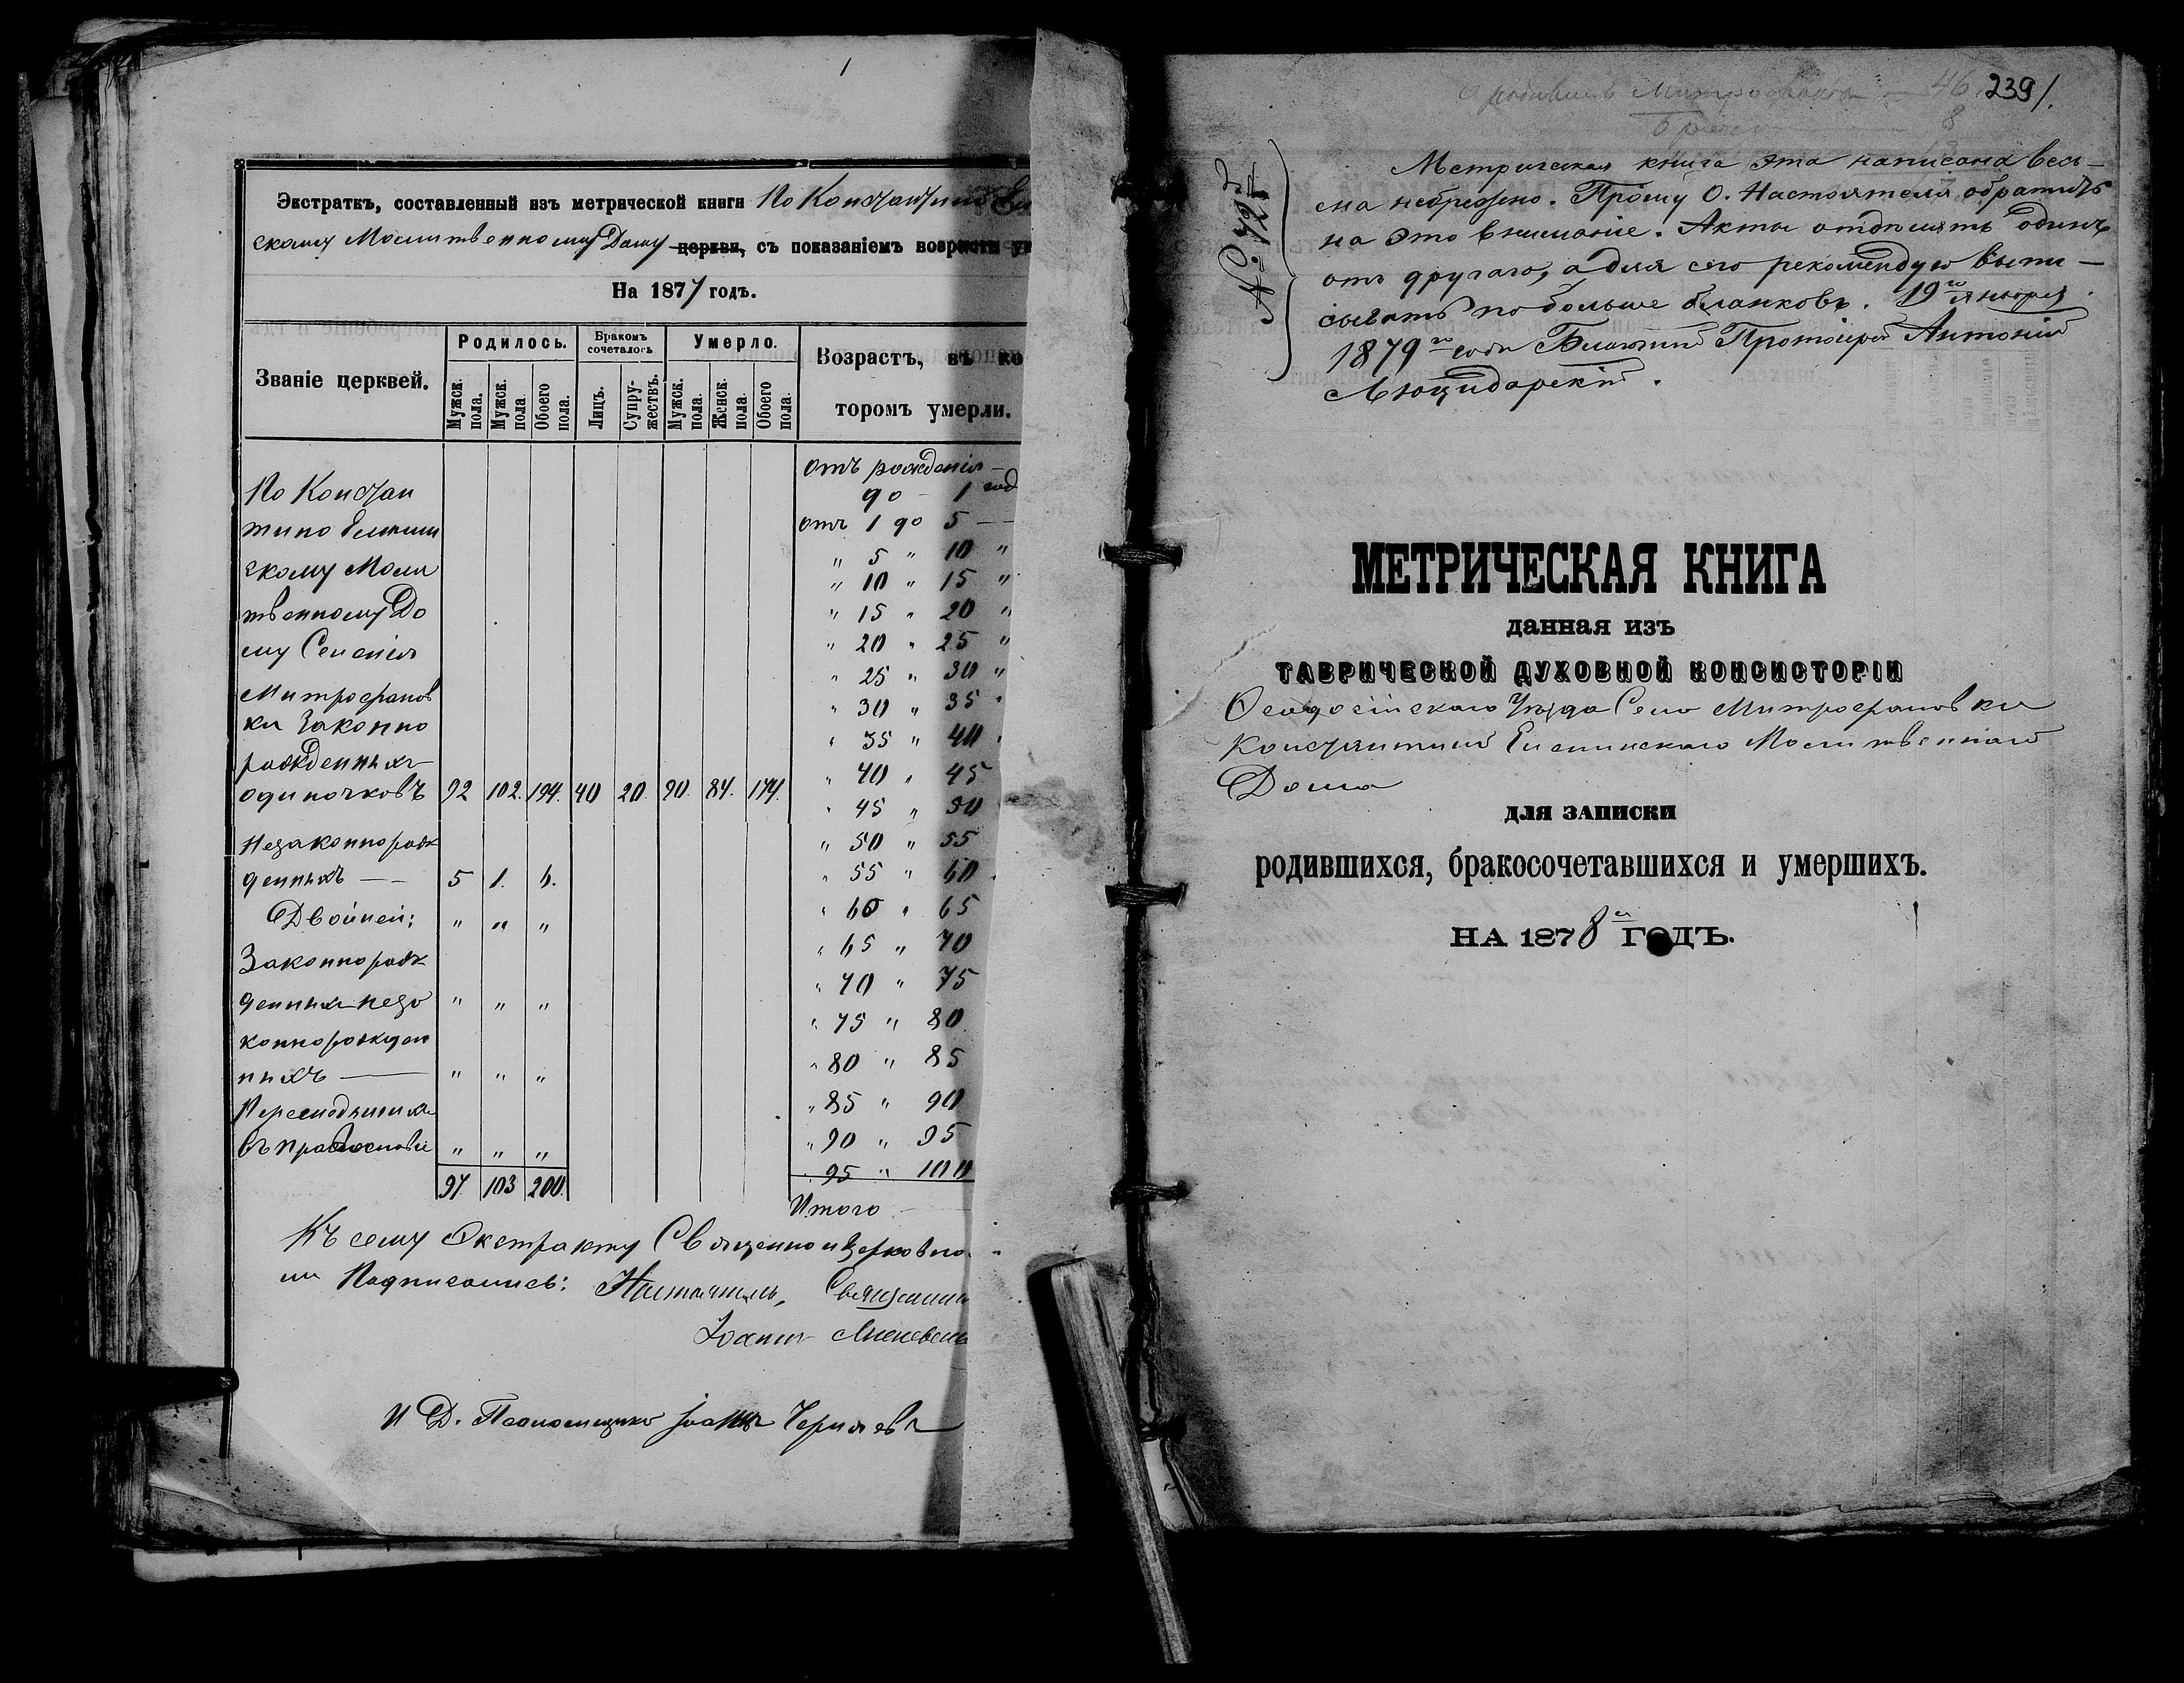 1
Экстрактъ, составленный изъ метрической книги По Константино Ел
скому Молитвенному Дому церкви, съ показаніемъ возраста ум
На 1877 годъ.
Званіе церквей.
Родилось.
Бракомъ сочеталось
Умерло.
Возрастъ, въ ко
торомъ умерли.
Мужск. пола.
Мужск. пола
Обоего пола.
Лицъ.
Супружествъ.
Мужск. пола.
Женск. пола.
Обоего пола.
По Констан
тино Еленин
скому Моли
твенному До
му Селенія
Митрофанов
ки Законно
рожденныхъ
одиночковъ 92 102. 194. 40 20. 90. 84. 174.
Незаконнорож
денныхъ — 5 1. 6.
Двойней: " " "
Законнорож
денныхъ незо " " "
коннорожден
ныхъ — " " "
въ православіе " " "
97 103 200.
Отъ рожденія
до - 1 год
отъ 1 до 5 —
" 5 " 10 "
" 10 " 15 "
" 15 " 20 "
" 20 " 25 "
" 25 " 30 "
" 30 " 35 "
" 35 " 40 "
" 40 " 45
" 45 " 50
" 50 " 55
" 55 " 60
" 60 " 65
" 65 " 70
" 70 " 75
" 75 " 80
" 80 " 85
" 85 " 90
" 90 " 95
" 95 " 100
Итого
Къ сему Экстракту Священноцерковно
ли Подписались: Настоятель, Священни
Іоаннъ
И Д. Псаломщика Іоаннъ Черняевъ
46 239/.
8
№ 129
Метрическая книга эта написана весь-
ма небрежно. Прошу О. Настоятеля обратить
на это вниманіе. Акты отдѣлять одинъ
отъ другаго, а для сего рекомендую выпи-
сывать побольше бланковъ. 19го января
1879го года Благочинный Протоіерей Антоній
МЕТРИЧЕСКАЯ КНИГА
данная изъ
ТАВРИЧЕСКОЙ ДУХОВНОЙ КОНСИСТОРІИ
Ѳеодосійскаго Уѣзда Села Митрофановки
Константино Еленинскаго Молитвеннаго
Дома
для записки
родившихся, бракосочетавшихся и умершихъ.
НА 1878й ГОДЪ.